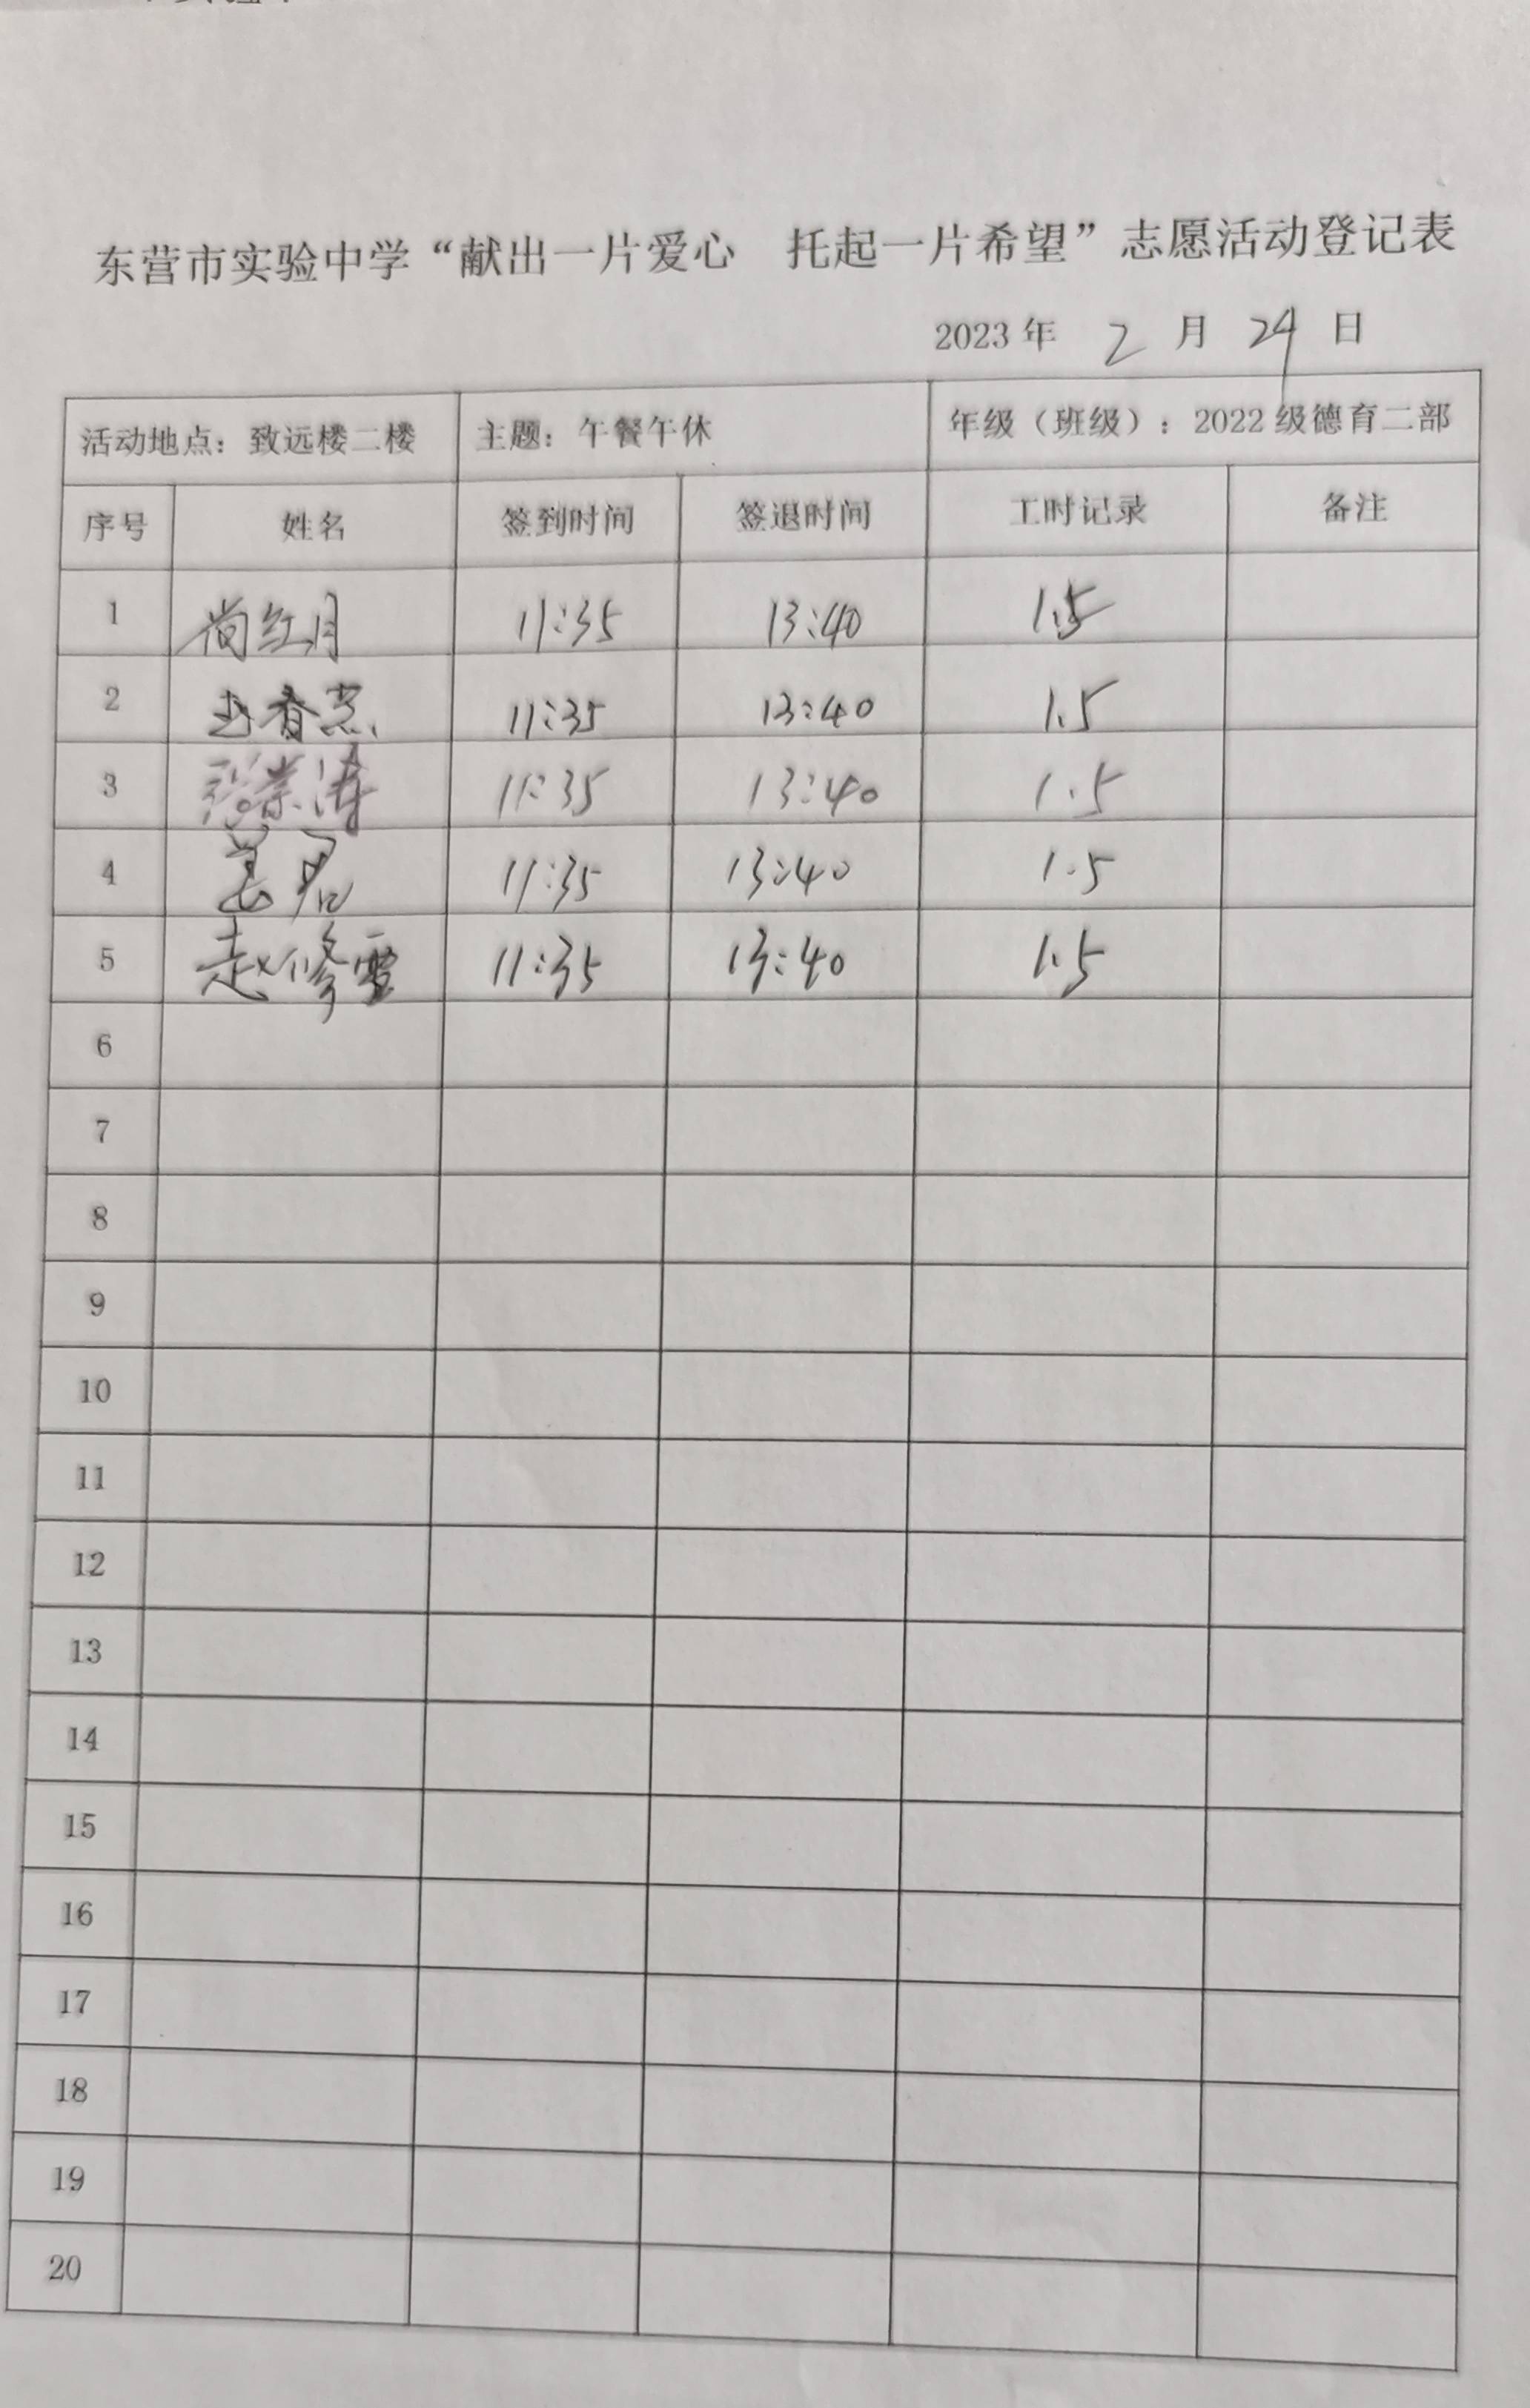 东营市实验中学“献出一片爱心 托起一片希望”志愿活动登记表
2023年 2 月 24 日
活动地点：致远楼二楼 主题：午餐午休 年级（班级）：2022级德育二部
序号 姓名 签到时间 签退时间 工时记录 备注
1 尚红月 11:35 13:40 1.5
2 11:35 13:40 1.5
3 11:35 13:40 1.5
4 姜君 11:35 13:40 1.5
5 赵修雪 11:35 13:40 1.5
6
7
8
9
10
11
12
13
14
15
16
17
18
19
20